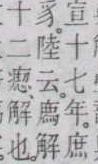 宣十七年。庶
豸。陸云。廌解
十二解也。